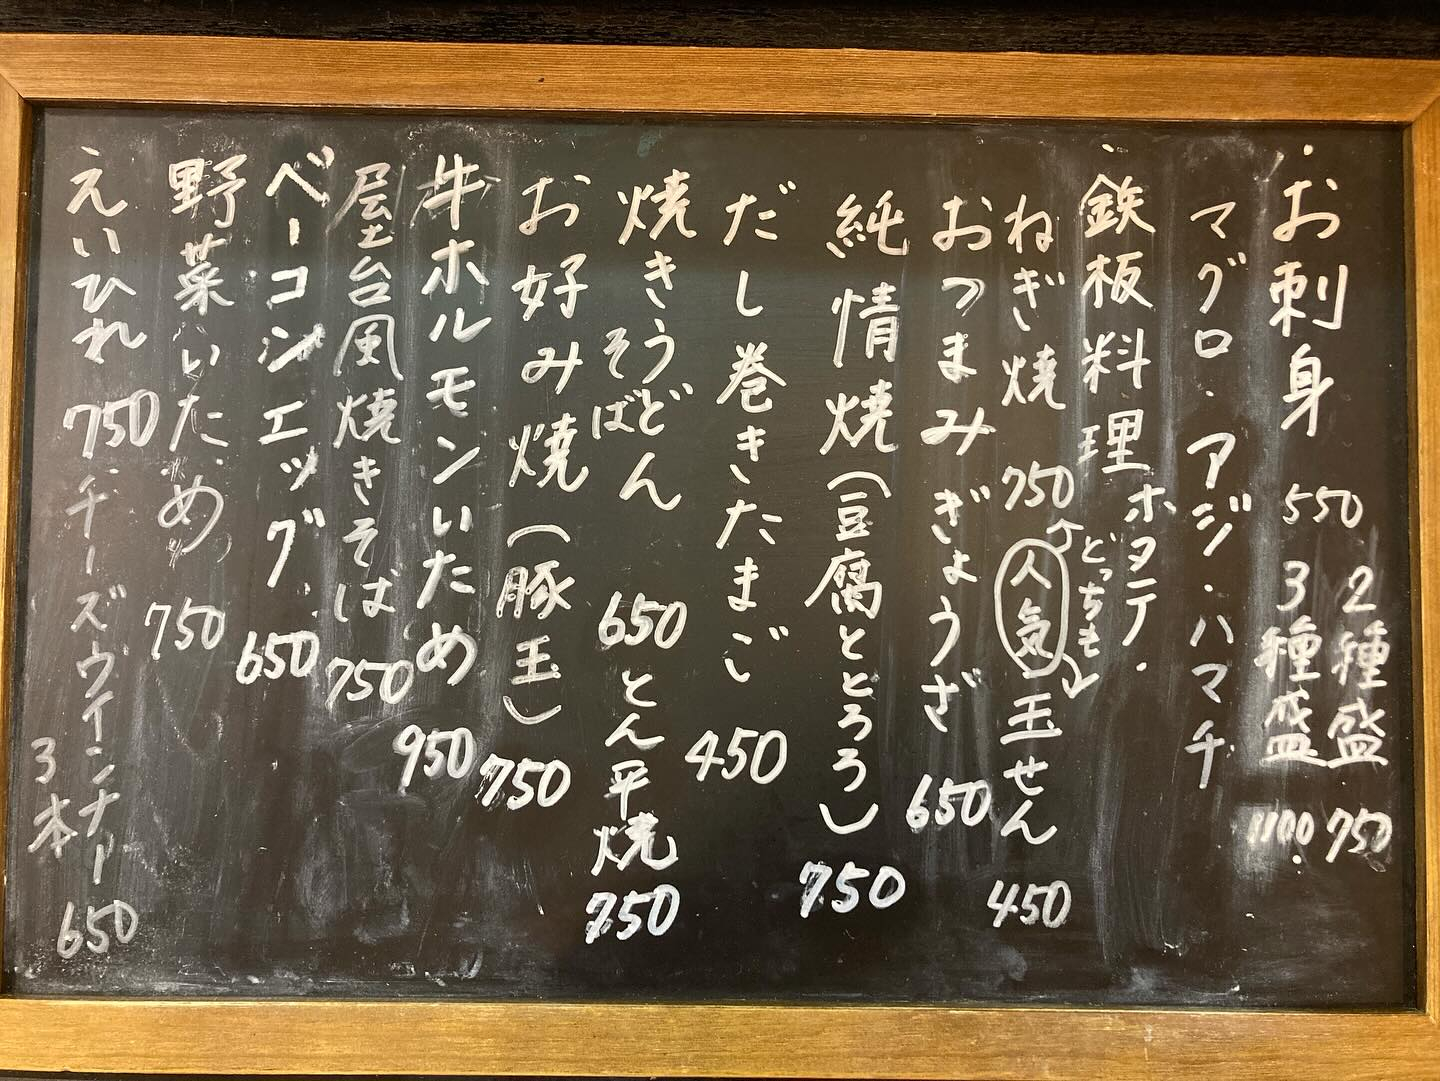 ・お刺身 550 2種盛 750
3種盛 1100
マグロ・アジ・ハマチ
ホタテ・
・鉄板料理
ねぎ焼 750 人気 玉せん 450
どっちも
おつまみぎょうざ 650
純情焼(豆腐ととろろ) 750
だし巻きたまご 450
焼きうどん 650 とん平焼 750
そば
お好み焼(豚玉) 750
牛ホルモンいため 950
屋台風焼きそば 750
ベーコンエッグ 650
野菜いため 750
えいひれ 750 チーズウインナー 650
3本